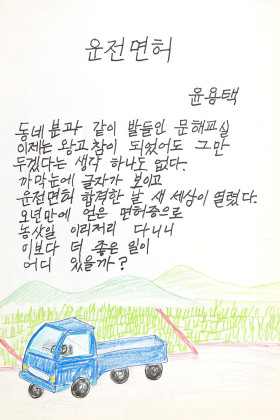 운전면허
윤용택
동네 분과 같이 발들인 문해교실
이제는 왕고참이 되었어도 그만
두겠다는 생각 하나도 없다.
까막눈에 글자가 보이고
운전면허 합격한 날 새 세상이 열렸다.
오년만에 얻은 면허증으로
농삿일 이리저리 다니니
이보다 더 좋은 일이
어디 있을까?